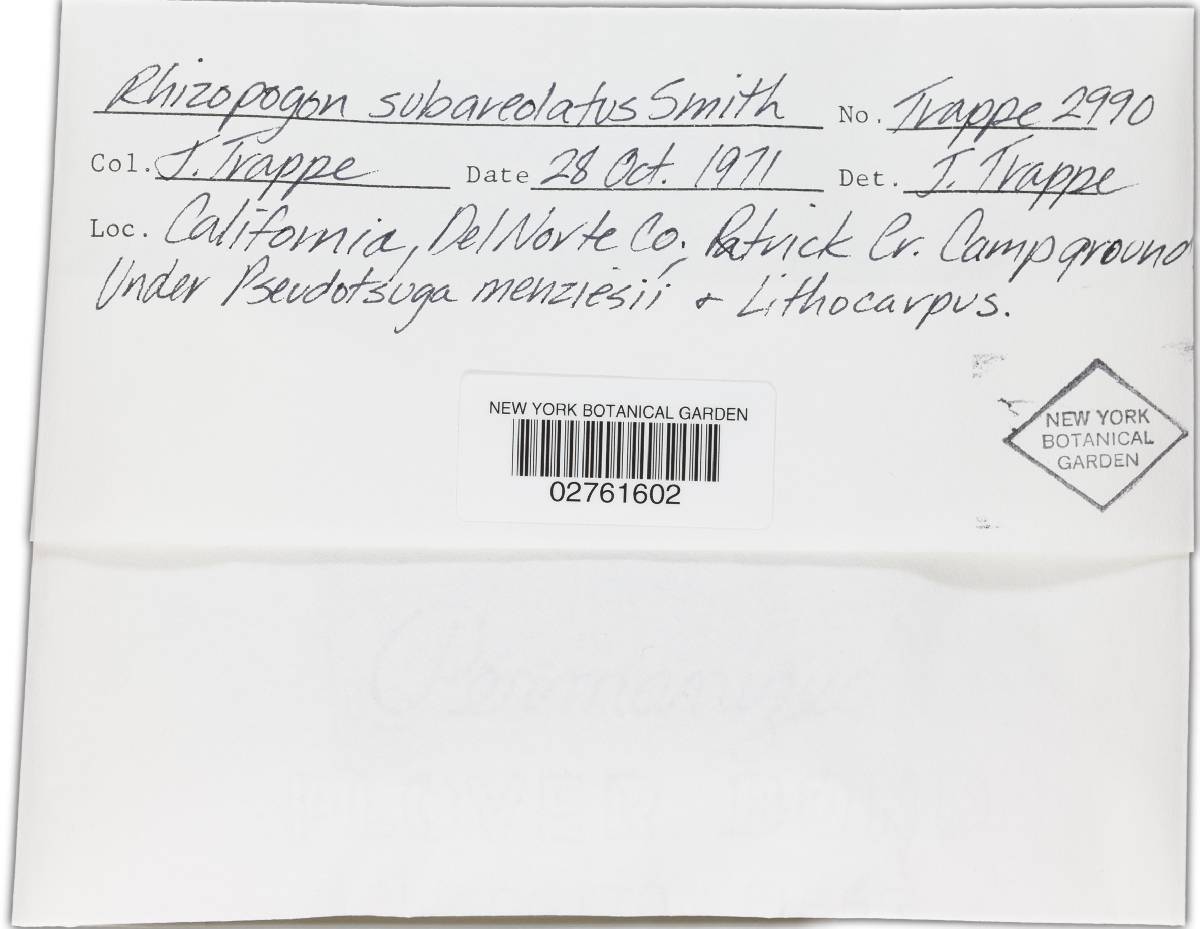 Rhizopogon subareolatus Smith No. Trappe 2990
Col. J. Trappe Date 28 Oct. 1971 Det. J. Trappe
Loc. California, Del Norte Co., Patrick Cr. Campground
Under Pseudotsuga menziesii & Lithocarpus.
NEW YORK BOTANICAL GARDEN
02761602
NEW YORK
BOTANICAL
GARDEN